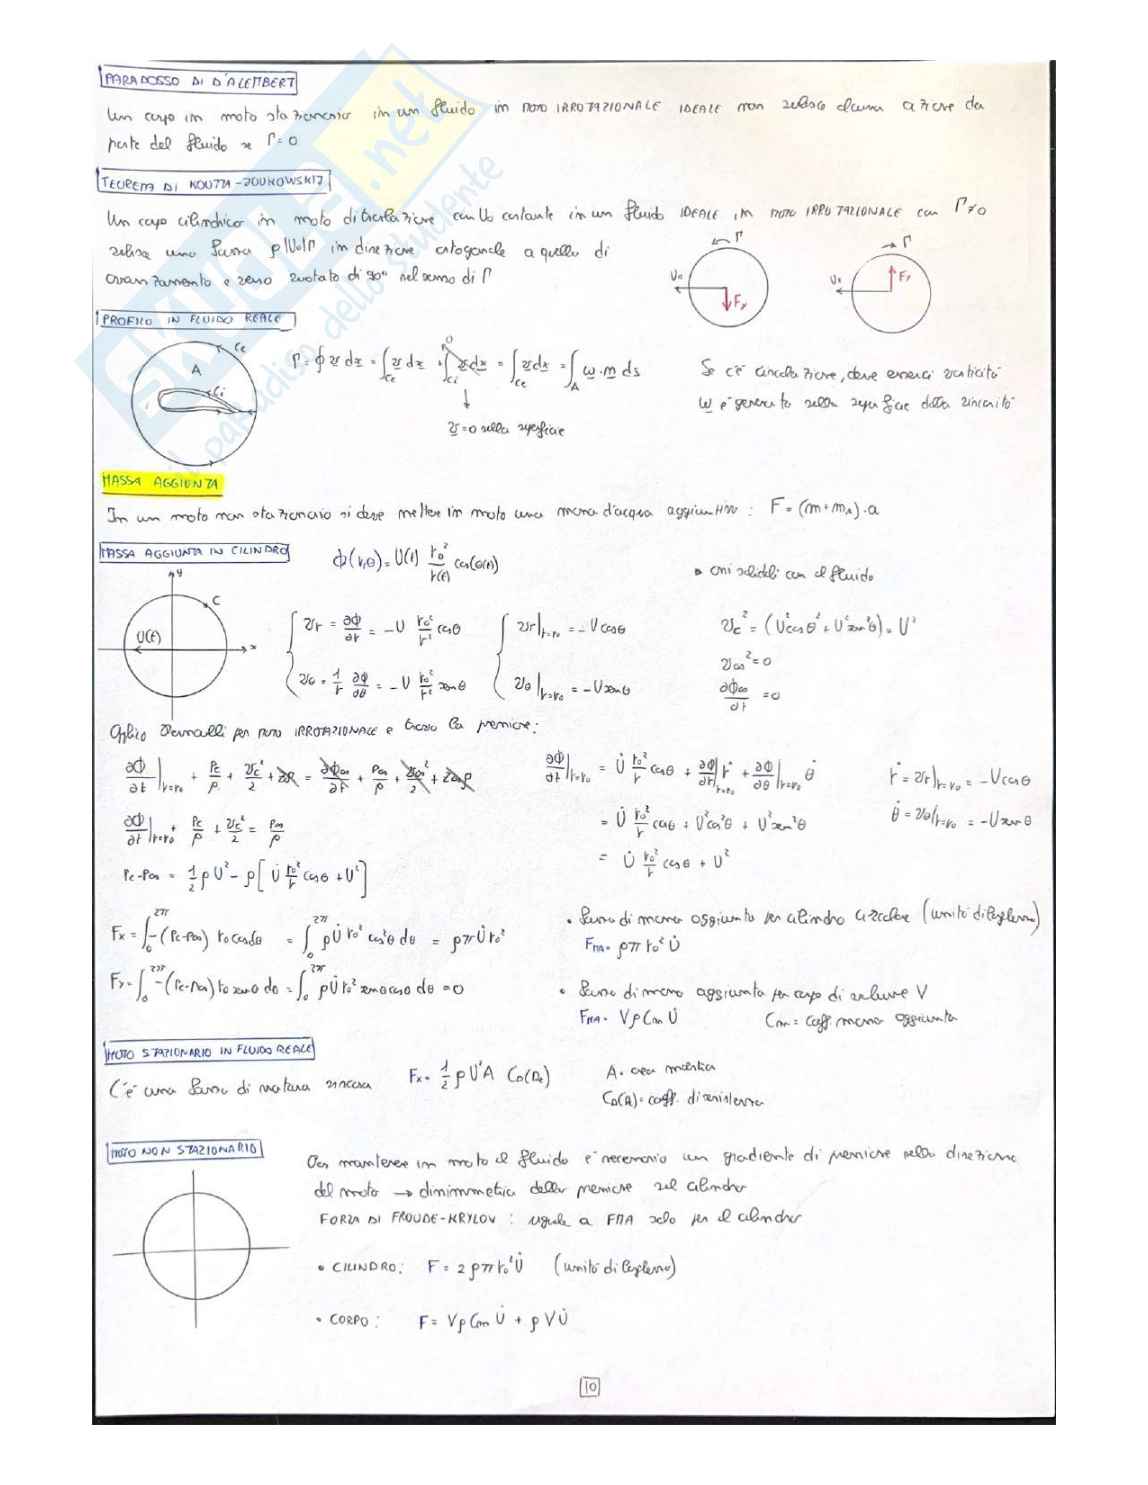 PARADOSSO DI D'ALEMBERT
Un corpo in moto stazionario in un fluido in MOTO IRROTAZIONALE IDEALE non subisce alcuna azione da
parte del fluido se Γ=0
TEOREMA DI KOUTTA-JOUKOWSKIJ
Un corpo cilindrico in moto di traslazione con U₀ costante in un fluido IDEALE in MOTO IRROTAZIONALE con Γ≠0
subisce una forza ρ|U₀|Γ in direzione ortogonale a quella di
avanzamento e verso ruotato di 90° nel senso di Γ
Γ U₀ Fy
Γ U₀ Fy
PROFILO IN FLUIDO REALE
Ce A Ci
Γ = ∮ v dx = ∫_Ce v dx + ∫_Ci v dx = ∫_Ce v dx = ∫_A ω · n ds
0
v=0 sulla superficie
Se c'è circolazione, deve esserci vorticità
ω è generata sulla superficie dalla viscosità
MASSA AGGIUNTA
In un moto non stazionario si deve mettere in moto una massa d'acqua aggiuntiva : F = (m+m_A)·a
MASSA AGGIUNTA IN CILINDRO
ϕ(r,θ) = U(t) r₀²/r(t) cos(θ(t))
• assi solidali con il fluido
y C U(t) x
v_r = ∂ϕ/∂r = -U r₀²/r² cosθ
v_θ = 1/r ∂ϕ/∂θ = -U r₀²/r² senθ
v_r|r=r₀ = -U cosθ
v_θ|r=r₀ = -U senθ
v_c² = (U²cos²θ + U²sen²θ) = U²
v_∞² = 0
∂ϕ_∞/∂t = 0
Applico Bernoulli per MOTO IRROTAZIONALE e trovo la pressione:
∂ϕ/∂t|r=r₀ + Pc/ρ + v_c²/2 + zg = ∂ϕ_∞/∂t + P∞/ρ + v_∞²/2 + z∞g
∂ϕ/∂t|r=r₀ + Pc/ρ + v_c²/2 = P∞/ρ
Pc-P∞ = 1/2 ρU² - ρ[U̇ r₀²/r cosθ + U²]
∂ϕ/∂t|r=r₀ = U̇ r₀²/r cosθ + ∂ϕ/∂r|r=r₀ ṙ + ∂ϕ/∂θ|r=r₀ θ̇
= U̇ r₀²/r cosθ + U²cos²θ + U²sen²θ
= U̇ r₀²/r cosθ + U²
ṙ = v_r|r=r₀ = -U cosθ
θ̇ = v_θ|r=r₀ = -U senθ
Fx = ∫₀^2π -(Pc-P∞) r₀ cosθ dθ = ∫₀^2π ρU̇ r₀² cos²θ dθ = ρπU̇r₀²
Fy = ∫₀^2π -(Pc-P∞) r₀ senθ dθ = ∫₀^2π ρU̇ r₀² senθ cosθ dθ = 0
• Forza di massa aggiunta per cilindro circolare (unità di lunghezza)
F_MA = ρπ r₀² U̇
• Forza di massa aggiunta per corpo di volume V
F_MA = Vρ Cm U̇ Cm = coeff. massa aggiunta
MOTO STAZIONARIO IN FLUIDO REALE
C'è una forza di natura viscosa Fx = 1/2 ρ U² A C_D(Re)
A = area maestra
C_D(R) = coeff. di resistenza
MOTO NON STAZIONARIO
Per mantenere in moto il fluido è necessario un gradiente di pressione nella direzione
del moto → dissimmetria della pressione sul cilindro
FORZA DI FROUDE-KRYLOV : uguale a FMA solo per il cilindro
• CILINDRO: F = 2ρπr₀²U̇ (unità di lunghezza)
• CORPO: F = Vρ Cm U̇ + ρVU̇
10
skuola.net
il paradiso dello studente